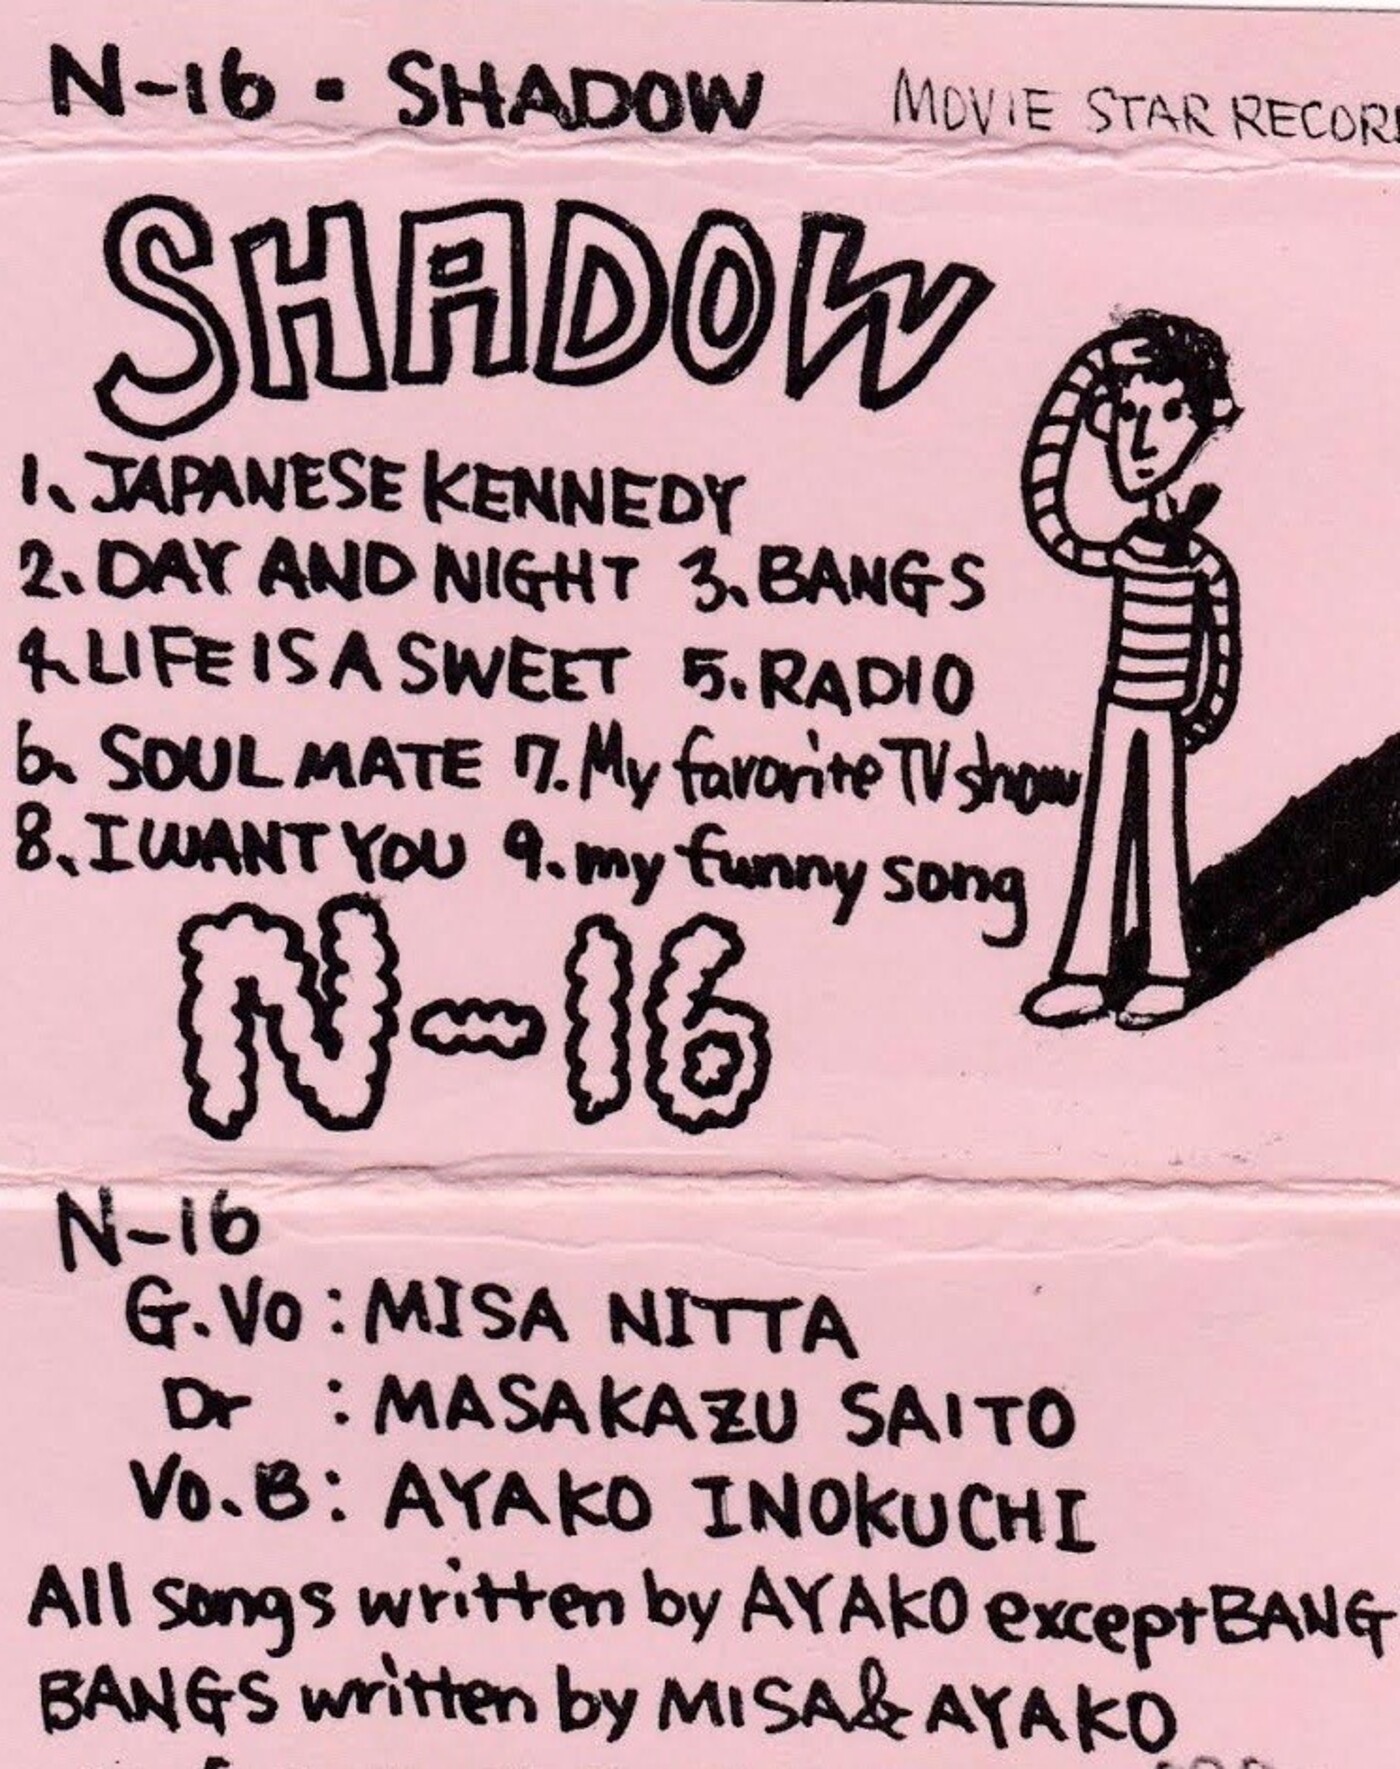 N-16 · SHADOW MOVIE STAR RECOR
SHADOW
1、JAPANESE KENNEDY
2、DAY AND NIGHT 3、BANGS
4、LIFE IS A SWEET 5. RADIO
6、SOUL MATE 7. My favorite TV show
8、I WANT YOU 9. my funny song
N-16
N-16
G.Vo : MISA NITTA
Dr : MASAKAZU SAITO
Vo.B : AYAKO INOKUCHI
All songs written by AYAKO except BANG
BANGS written by MISA & AYAKO